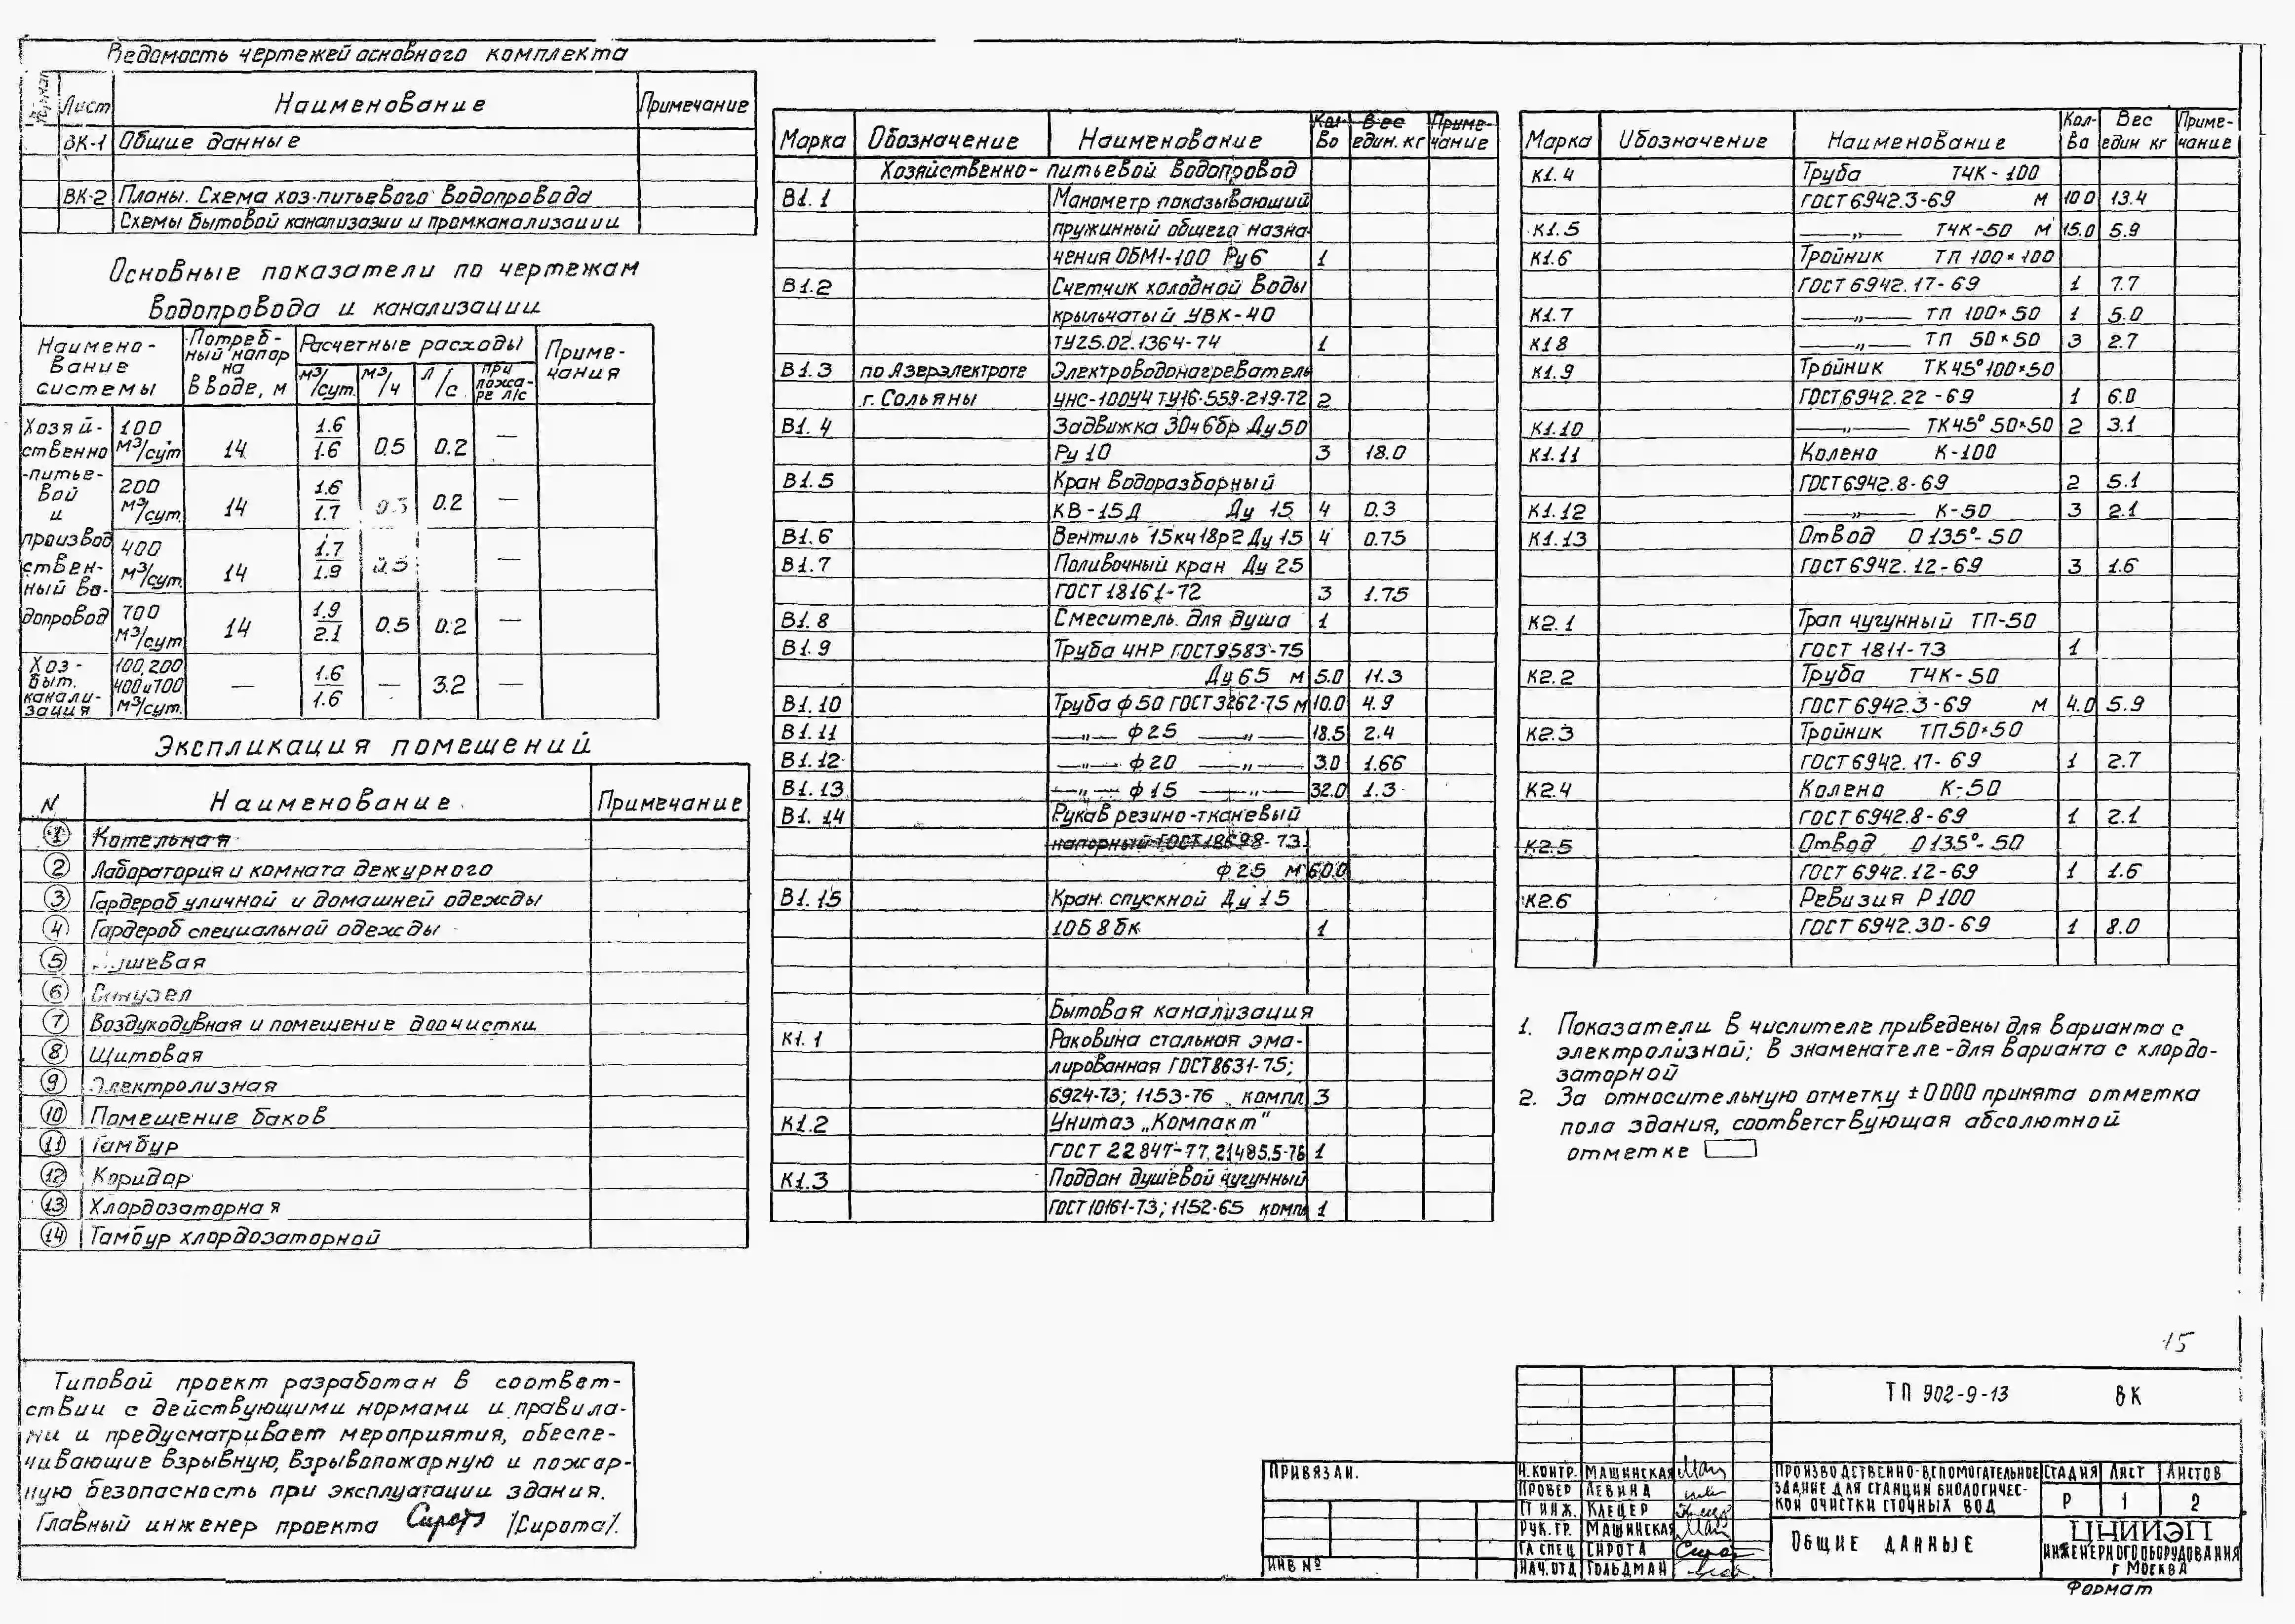 Ведомость чертежей основного комплекта
Лист Наименование Примечание
ВК-1 Общие данные
ВК-2 Планы. Схема хоз-питьевого водопровода
Схемы бытовой канализации и промканализации
Основные показатели по чертежам
водопровода и канализации
Наимено-вание системы Потреб-ный напор на вводе, м Расчетные расходы Приме-чания
м³/сут. м³/ч л/с при пожа-ре л/с
Хозяй-ственно-питье-вой и производ ствен-ный во-допровод
100 м³/сут 14 1.6/1.6 0.5 0.2 —
200 м³/сут. 14 1.6/1.7 0.2 —
400 м³/сут. 14 1.7/1.9 —
700 м³/сут 14 1.9/2.1 0.5 0.2 —
Хоз-быт. канали-зация 100,200 400и700 м³/сут. — 1.6/1.6 — 3.2 —
Экспликация помещений
N Наименование Примечание
1 Котельная
2 Лаборатория и комната дежурного
3 Гардероб уличной и домашней одежды
4 Гардероб специальной одежды
5 Душевая
6 Санузел
7 Воздуходувная и помещение доочистки
8 Щитовая
9 Электролизная
10 Помещение баков
11 Тамбур
12 Коридор
13 Хлордозаторная
14 Тамбур хлордозаторной
Типовой проект разработан в соответ-
ствии с действующими нормами и правила-
ми и предусматривает мероприятия, обеспе-
чивающие взрывную, взрывопожарную и пожар-
ную безопасность при эксплуатации здания.
Главный инженер проекта /Сирота/.
Марка Обозначение Наименование Кол-во Вес един. кг Приме-чание
Хозяйственно-питьевой водопровод
В1.1 Манометр показывающий
пружинный общего назна-
чения ОБМ1-100 Ру6 1
В1.2 Счетчик холодной воды
крыльчатый УВК-40
ТУ25.02.1364-74 1
В1.3 по Азерэлектроте Электроводонагреватель
г. Сольяны УНС-100У4 ТУ16-559-219-72 2
В1.4 Задвижка 30ч6бр Ду50
Ру10 3 18.0
В1.5 Кран водоразборный
КВ-15Д Ду 15 4 0.3
В1.6 Вентиль 15кч18р2 Ду15 4 0.75
В1.7 Поливочный кран Ду 25
ГОСТ 18161-72 3 1.75
В1.8 Смеситель для душа 1
В1.9 Труба ЧНР ГОСТ9583-75
Ду65 м 5.0 11.3
В1.10 Труба ф50 ГОСТ3262-75 м 10.0 4.9
В1.11 —"— ф25 —"— 18.5 2.4
В1.12 —"— ф20 —"— 3.0 1.66
В1.13 —"— ф15 —"— 32.0 1.3
В1.14 Рукав резино-тканевый
напорный ГОСТ18698-73
ф25 м 60.0
В1.15 Кран спускной Ду15
10Б8бк 1
Бытовая канализация
К1.1 Раковина стальная эма-
лированная ГОСТ8631-75;
6924-73; 1153-76 компл 3
К1.2 Унитаз „Компакт"
ГОСТ 22847-77, 21485.5-76 1
К1.3 Поддон душевой чугунный
ГОСТ10161-73; 1152-65 компл 1
Марка Обозначение Наименование Кол-во Вес един кг Приме-чание
К1.4 Труба ТЧК-100
ГОСТ6942.3-69 м 10.0 13.4
К1.5 —"— ТЧК-50 м 15.0 5.9
К1.6 Тройник ТП 100×100
ГОСТ6942.17-69 1 7.7
К1.7 —"— ТП 100×50 1 5.0
К1.8 —"— ТП 50×50 3 2.7
К1.9 Тройник ТК45°100×50
ГОСТ6942.22-69 1 6.0
К1.10 —"— ТК45°50×50 2 3.1
К1.11 Колено К-100
ГОСТ6942.8-69 2 5.1
К1.12 —"— К-50 3 2.1
К1.13 Отвод О135°-50
ГОСТ6942.12-69 3 1.6
К2.1 Трап чугунный ТП-50
ГОСТ 1811-73 1
К2.2 Труба ТЧК-50
ГОСТ6942.3-69 м 4.0 5.9
К2.3 Тройник ТП50×50
ГОСТ6942.17-69 1 2.7
К2.4 Колено К-50
ГОСТ6942.8-69 1 2.1
К2.5 Отвод О135°-50
ГОСТ 6942.12-69 1 1.6
К2.6 Ревизия Р100
ГОСТ 6942.30-69 1 8.0
1. Показатели в числителе приведены для варианта с
электролизной; в знаменателе-для варианта с хлордо-
заторной
2. За относительную отметку ±0000 принята отметка
пола здания, соответствующая абсолютной
отметке
15
ТП 902-9-13 ВК
Привязан.
Инв №
Н.контр. Машинская
Провер Левина
Ст инж. Клецер
Рук. гр. Машинская
Гл спец Сирота
Нач. отд Гольдман
Производственно-вспомогательное
здание для станции биологичес-
кой очистки сточных вод
Стадия Лист Листов
Р 1 2
Общие данные
ЦНИИЭП
инженерного оборудования
г Москва
Формат